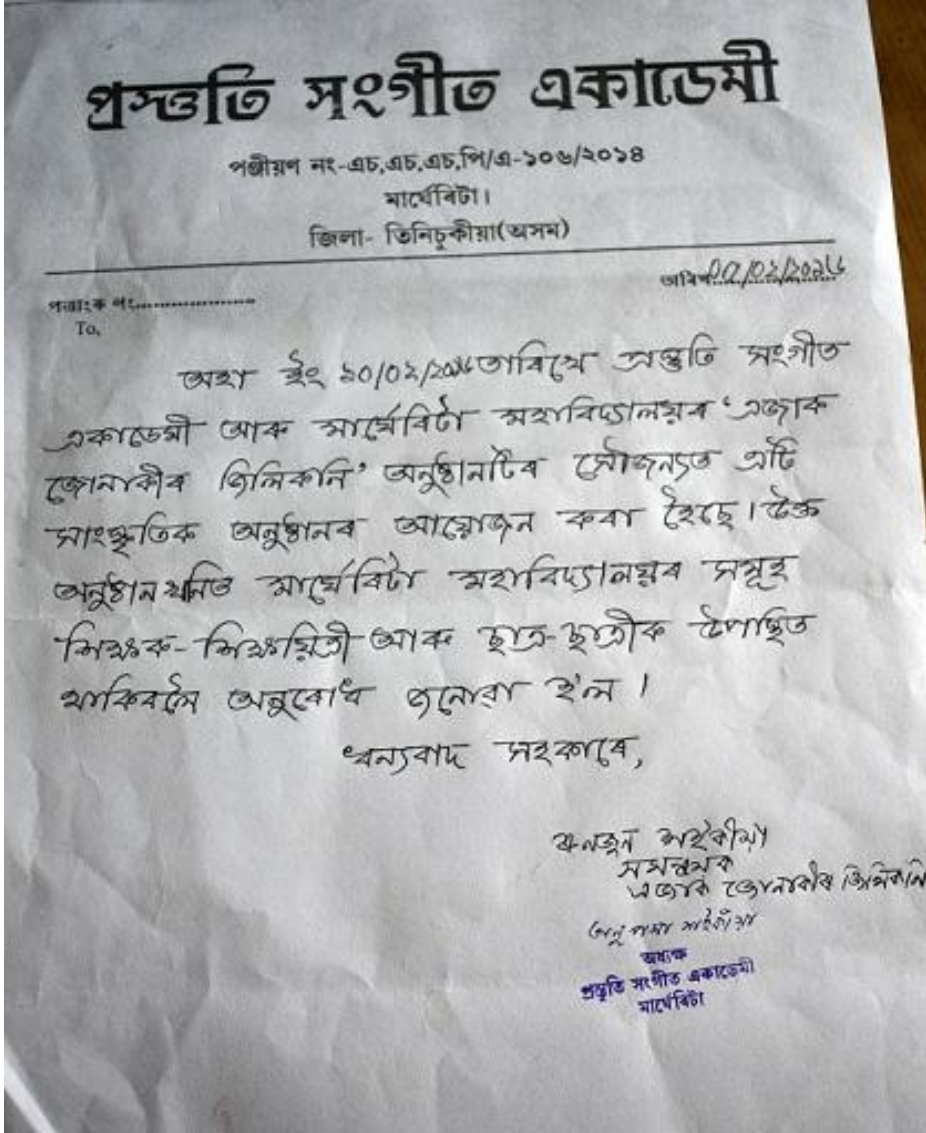 প্ৰস্তুতি সংগীত একাডেমী
পঞ্জীয়ণ নং-এচ,এচ,এচ,পি/এ-১০৬/২০১৪
মাৰ্ঘেৰিটা।
জিলা- তিনিচুকীয়া(অসম)
পত্ৰাংক নং.....................
To,
অহা ইং ১০/০২/২০১৬ তাৰিখে প্ৰস্তুতি সংগীত
একাডেমী আৰু মাৰ্ঘেৰিটা মহাবিদ্যালয়ৰ 'এজাক
জোনাকীৰ জিলিকনি' অনুষ্ঠানটিৰ সৌজন্যত এটি
সাংস্কৃতিক অনুষ্ঠানৰ আয়োজন কৰা হৈছে। উক্ত
অনুষ্ঠান খনিত মাৰ্ঘেৰিটা মহাবিদ্যালয়ৰ সমূহ
শিক্ষক-শিক্ষয়িত্ৰী আৰু ছাত্ৰ-ছাত্ৰীক উপস্থিত
থাকিবলৈ অনুৰোধ জনোৱা হ'ল।
ধন্যবাদ সহকাৰে,
শইকীয়া
এজাক জোনাকীৰ জিলিকনি
অনুপমা শইকীয়া
অধ্যক্ষ
প্ৰস্তুতি সংগীত একাডেমী
মাৰ্ঘেৰিটা